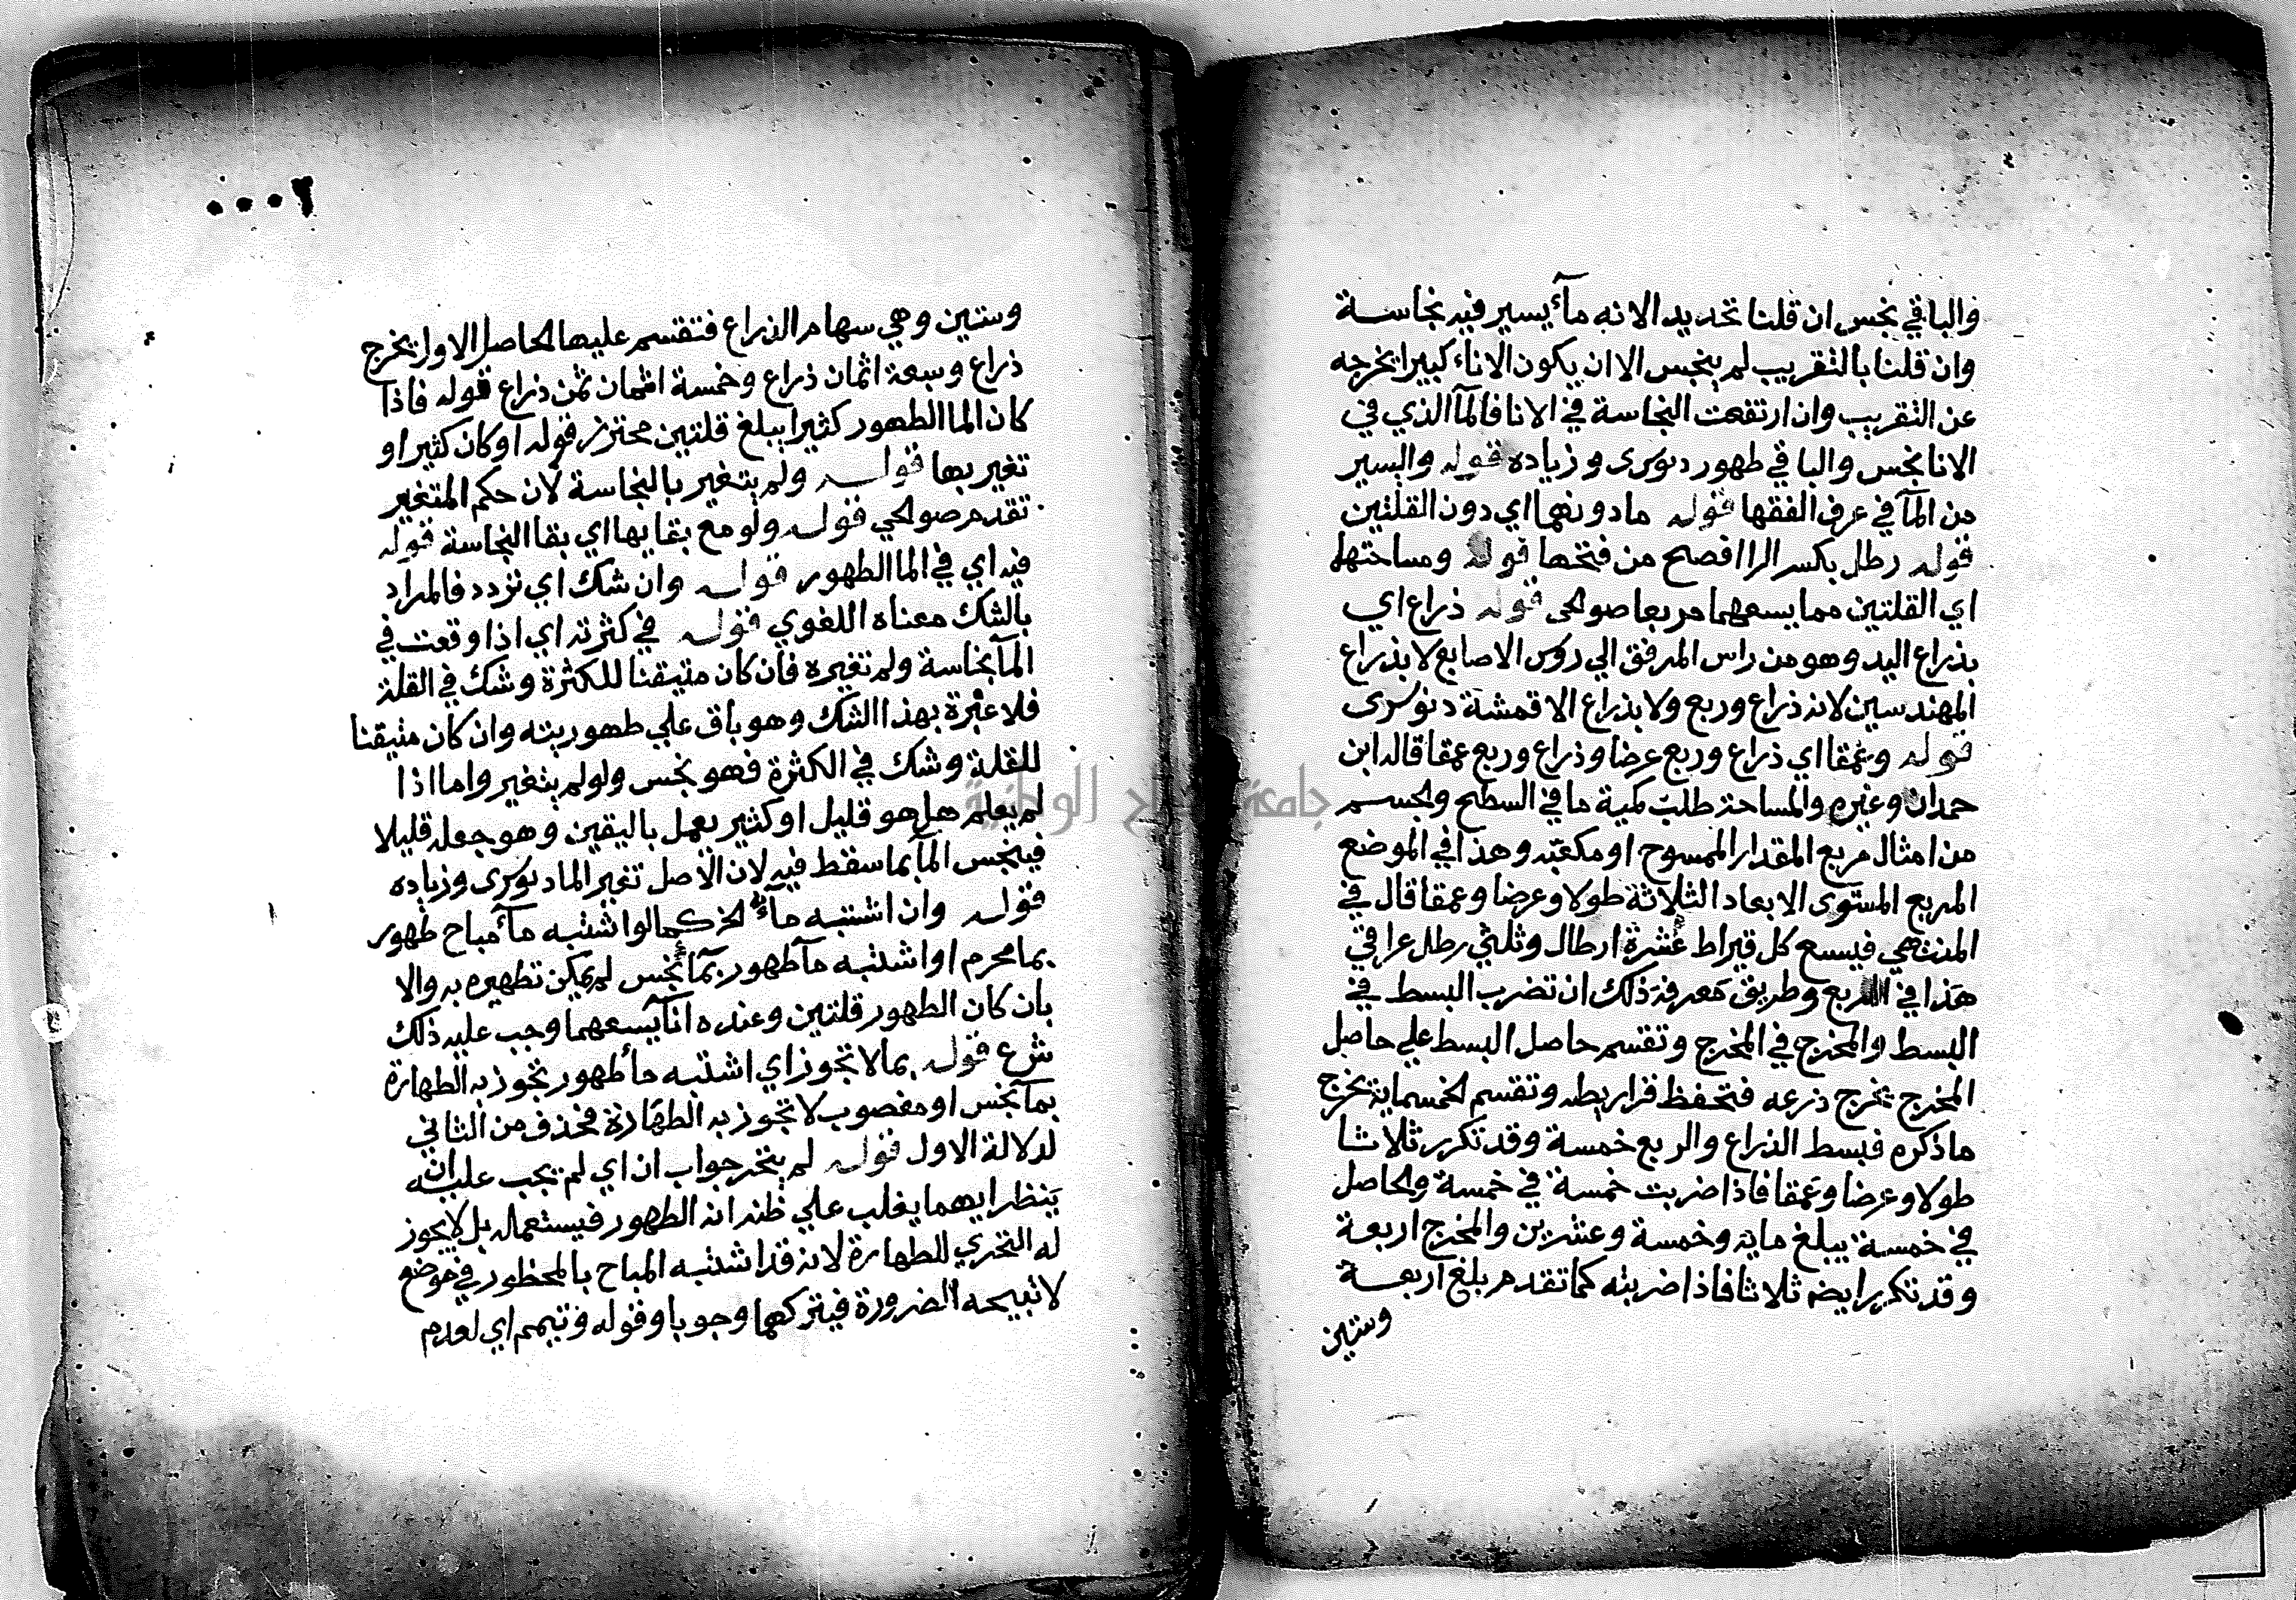 والباقي نجس ان قلنا تحديد الانه مآء يسير فيه نجاسة
وان قلنا بالتقريب لم ينجس الا ان يكون الاناء كبيرا يخرجه
عن التقريب وان ارتفعت النجاسة في الانا فالمآ الذي في
الانا نجس والباقي طهور دنوسرى وزياده قوله واليسير
من المآ في عرف الفقها قوله مادونهما اي دون القلتين
قوله رطل بكسر الرا افصح من فتحها قوله ومساحتها
اي القلتين مما يسعهما مربعا صوالحى قوله ذراع اي
بذراع اليد وهو من راس المرفق الي روس الاصابع لا بذراع
المهندسين لانه ذراع وربع ولا بذراع الاقمشة دنوسرى
قوله وعمقا اي ذراع وربع عرضا وذراع وربع عمقا قاله ابن
حمدان وغيره والمساحة طلب كمية ما في السطح والجسم
من امثال مربع المقدار الممسوح او مكعبه وهذا في الموضع
المربع المستوى الابعاد الثلاثة طولا وعرضا وعمقا قال في
المنتهي فيسع كل قيراط عشرة ارطال وثلثي رطل عراقي
هذا في المربع وطريق معرفة ذلك ان تضرب البسط في
البسط والمخرج في المخرج وتقسم حاصل البسط علي حاصل
المخرج يخرج ذرعه فتحفظ قراريطه وتقسم الخمسماية يخرج
ما ذكره فبسط الذراع والربع خمسة وقد تكرر ثلاثا
طولا وعرضا وعمقا فاذا ضربت خمسة في خمسة والحاصل
في خمسة يبلغ ماية وخمسة وعشرين والمخرج اربعة
وقد تكرر ايضه ثلاثا فاذا ضربته كما تقدم بلغ اربعة
وستين
وستين وهي سهام الذراع فتقسم عليها الحاصل الاول يخرج
ذراع وسبعة اثمان ذراع وخمسة اثمان ثمن ذراع قوله فاذا
كان الما الطهور كثيرا يبلغ قلتين محترز قوله او كان كثيرا و
تغير بها قوله ولم يتغير بالنجاسة لان حكم المتغير
تقدم صوالحي قوله ولو مع بقايها اي بقا النجاسة قوله
فيه اي في الما الطهور قوله وان شك اي تردد فالمراد
بالشك معناه اللغوي قوله في كثرته اي اذا وقعت في
المآ نجاسة ولم تغيره فان كان متيقنا للكثرة وشك في القلة
فلا عبرة بهذا الشك وهو باق علي طهوريته وان كان متيقنا
للقلة وشك في الكثرة فهو نجس ولو لم يتغير واما اذا
لم يعلم هل هو قليل او كثير يعمل باليقين وهو جعله قليلا
فينجس المآ بما سقط فيه لان الاصل تغير الما دنوسرى وزياده
قوله وان اشتبه مآء الخ كما لو اشتبه مآء مباح طهور
بما محرم او اشتبه مآ طهور بمآء نجس لم يمكن تطهيره به والا
بان كان الطهور قلتين وعنده انآ يسعهما وجب عليه ذلك
ش ع قوله بما لا تجوز اي اشتبه مأ طهور تجوز به الطهارة
بمآ نجس او مغصوب لا تجوز به الطهارة فحذف من الثاني
لدلالة الاول قوله لم يتحر جواب ان اي لم يجب عليه ان
ينظر ايهما يغلب علي ظنه انه الطهور فيستعمله بل لا يجوز
له التحري للطهارة لانه قد اشتبه المباح بالمحظور في موضع
لا تبيحه الضرورة فيتركهما وجوبا وقوله وتيمم اي لعدم